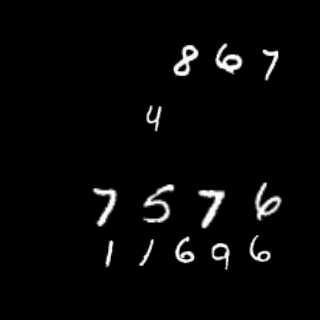 8 6 7
4
7 5 7 6
1 1 6 9 6